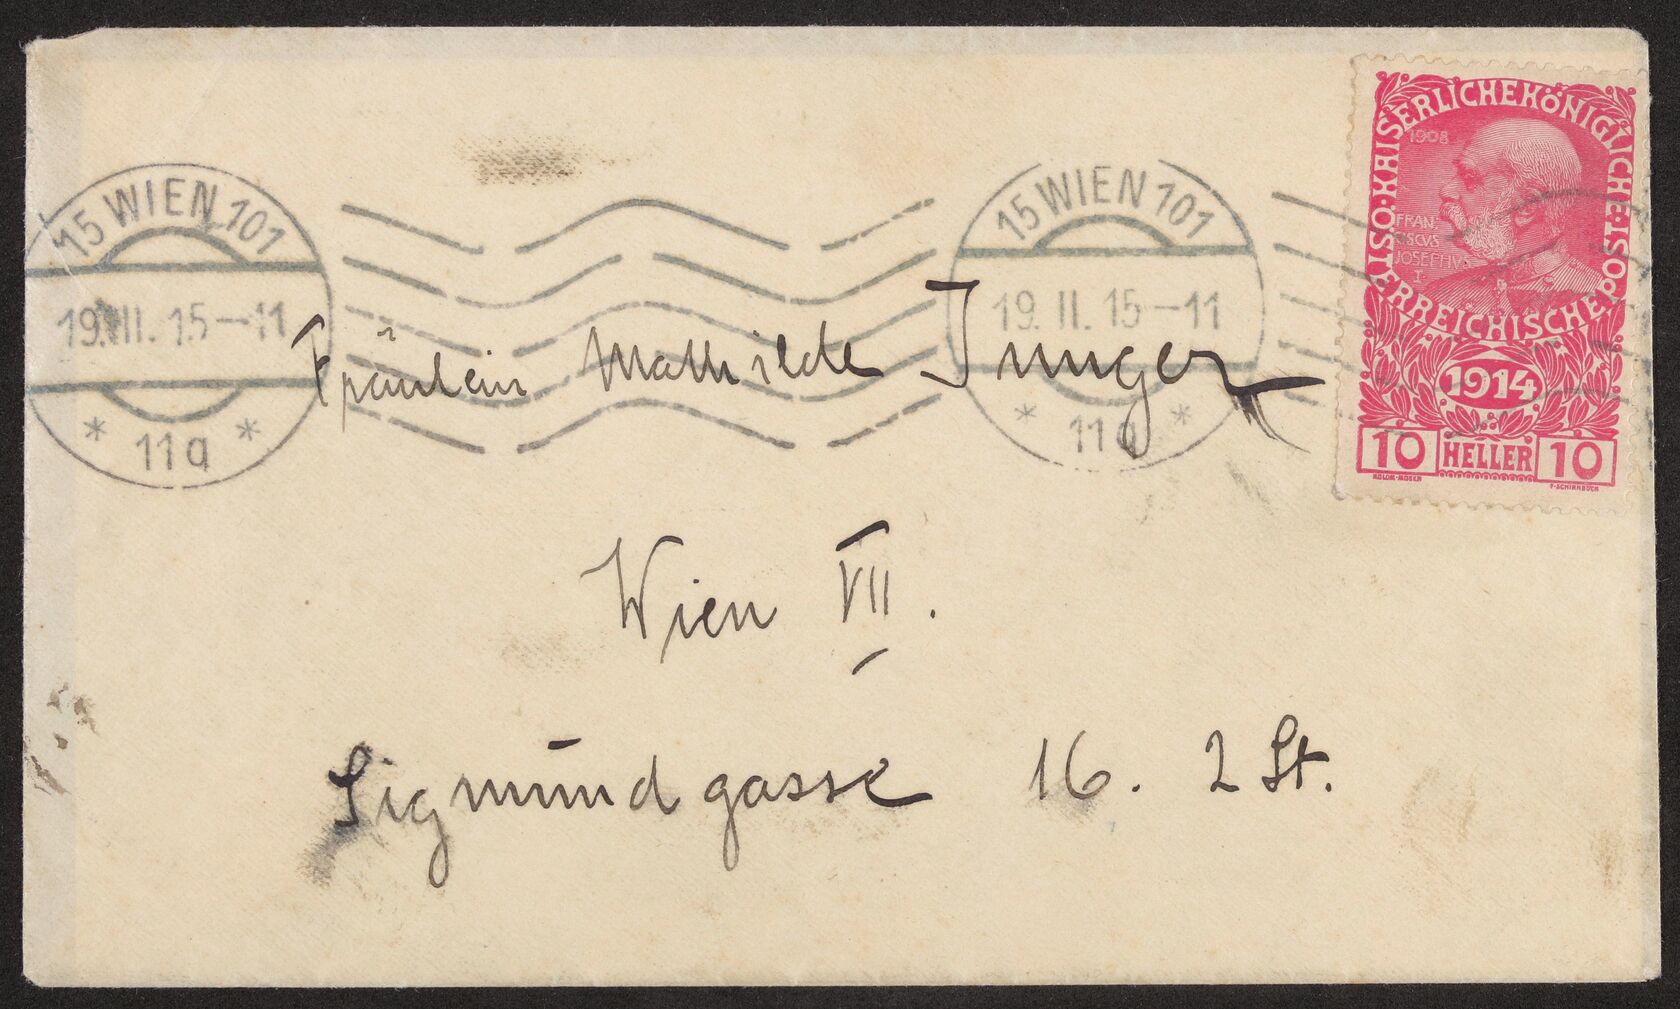 KAISERLICHE KÖNIGLICHE
ÖSTERREICHISCHE POST
1908
FRAN
CISCVS
JOSEPHVS
I.
1914
10 HELLER 10
KOLOM·MOSER F·SCHIRNBÖCK
15 WIEN 101
19. II. 15-11
* 11a *
15 WIEN 101
19. II. 15-11
* 11a *
Fräulein Mathilde Junger
Wien VII.
Sigmundgasse 16. 2 St.